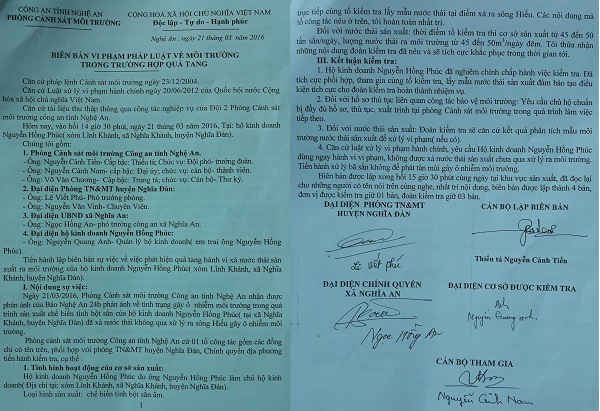 CÔNG AN TỈNH NGHỆ AN
PHÒNG CẢNH SÁT MÔI TRƯỜNG
CỘNG HÒA XÃ HỘI CHỦ NGHĨA VIỆT NAM
Độc lập - Tự do - Hạnh phúc
Nghệ an, ngày 21 tháng 03 năm 2016
BIÊN BẢN VI PHẠM PHÁP LUẬT VỀ MÔI TRƯỜNG
TRONG TRƯỜNG HỢP QUẢ TANG
Căn cứ pháp lệnh Cảnh sát môi trường ngày 23/12/2004.
Căn cứ Luật xử lý vi phạm hành chính ngày 20/06/2012 của Quốc hội nước Cộng
hòa xã hội chủ nghĩa Việt Nam.
Căn cứ tài liệu thu thập thông qua công tác nghiệp vụ của Đội 2 Phòng Cảnh sát
môi trường công an tỉnh Nghệ An.
Hôm nay, vào hồi 14 giờ 30 phút, ngày 21 tháng 03 năm 2016, Tại: hộ kinh doanh
Nguyễn Hồng Phúc( xóm Linh Khánh, xã Nghĩa Khánh, huyện Nghĩa Đàn).
Chúng tôi gồm:
1. Phòng Cảnh sát môi trường Công an tỉnh Nghệ An.
-Ông: Nguyễn Cảnh Tiến- Cấp bậc: Thiếu tá; Chức vụ: Đội phó- trưởng đoàn.
-Ông: Nguyễn Cảnh Nam- cấp bậc: Đại úy; chức vụ: cán bộ- thành viên.
-Ông: Võ Văn Chương- Cấp bậc: Trung tá; chức vụ: Cán bộ- Thư ký.
2. Đại diện Phòng TN&MT huyện Nghĩa Đàn:
-Ông: Lê Viết Phú- Phó trưởng phòng.
-Ông: Nguyễn Văn Vinh- Chuyên Viên.
3. Đại diện UBND xã Nghĩa An:
- Ông: Ngọc Hồng An- phó trưởng công an xã Nghĩa An.
4. Đại diện hộ kinh doanh Nguyễn Hồng Phúc:
- Ông: Nguyễn Quang Anh- Quản lý hộ kinh doanh( em trai ông Nguyễn Hồng
Phúc).
Tiến hành lập biên bản sự việc về việc phát hiện quả tang hành vi xả nước thải sản
xuất ra môi trường của hộ kinh doanh Nguyễn Hồng Phúc( xóm Linh Khánh, xã Nghĩa
Khánh, huyện Nghĩa Đàn).
I. Nội dung sự việc:
Ngày 21/03/2016, Phòng Cảnh sát môi trường Công an tỉnh Nghệ An nhận được
phản ánh của Báo Nghệ An 24h phản ánh về tình trạng gây ô nhiễm môi trường trong quá
trình sản xuất chế biến tinh bột sắn của hộ kinh doanh Nguyễn Hồng Phúc( tại xã Nghĩa
Khánh, huyện Nghĩa Đàn) đã xả nước thải không qua xử lý ra sông Hiếu gây ô nhiễm môi
trường.
Phòng cảnh sát môi trường Công an tỉnh Nghệ An cử 01 tổ công tác gồm các đồng
chí có tên trên, phối hợp với phòng TN&MT huyện Nghĩa Đàn, Chính quyền địa phương
tiến hành kiểm tra, cụ thể
1. Tình hình hoạt động của cơ sở sản xuất:
Hộ kinh doanh Nguyễn Hồng Phúc do ông Nguyễn Hồng Phúc làm chủ hộ kinh
doanh( Địa chỉ tại: xóm Linh Khánh, xã Nghĩa Khánh, huyện Nghĩa Đàn).
Loại hình sản xuất: chế biến tinh bột sắn ẩm.
1
trực tiếp cùng tổ kiểm tra lấy mẫu nước thải tại điểm xả ra sông Hiếu. Các nội dung mà
tổ công tác nêu ở trên, tôi hoàn toàn nhất trí.
Đối với nước thải sản xuất: thời điểm tổ kiểm tra thì cơ sở sản xuất từ 45 đến 50
tấn sắn/ngày, lượng nước thải ra môi trường từ 45 đến 50m3/ngày đêm. Tôi thừa nhận
những nội dung đoàn kiểm tra đã nêu và sẽ tích cực khắc phục trong thời gian tới.
III. Kết luận kiểm tra:
1. Hộ kinh doanh Nguyễn Hồng Phúc đã nghiêm chỉnh chấp hành việc kiểm tra. Đã
tích cực phối hợp, tham gia cùng tổ kiểm tra, lấy mẫu nước thải sản xuất đảm bảo tạo điều
kiện tích cực cho đoàn kiểm tra hoàn thành nhiệm vụ.
2. Đối với hồ sơ thủ tục liên quan công tác bảo vệ môi trường: Yêu cầu chủ hộ chuẩn
bị đầy đủ hồ sơ, thủ tục, xuất trình tại phòng Cảnh sát môi trường trong quá trình làm việc
tiếp theo.
3. Đối với nước thải sản xuất: Đoàn kiểm tra sẽ căn cứ kết quả phân tích mẫu môi
trường nước thải sản xuất để xử lý vi phạm( nếu có).
4. Căn cứ luật xử lý vi phạm hành chính, yêu cầu Hộ kinh doanh Nguyễn Hồng Phúc
dừng ngay hành vi vi phạm, không được xả nước thải sản xuất chưa qua xử lý ra môi trường.
Tiến hành xử lý bã sắn không để phát tán mùi gây ô nhiễm môi trường.
Biên bản được lập xong hồi 15 giờ 30 phút cùng ngày tại khu vực sản xuất, đã đọc lại
cho những người có tên nói trên cùng nghe, nhất trí nội dung, biên bản được lập thành 4 bản,
đơn vị được kiểm tra giữ 01 bản, đoàn kiểm tra giữ 03 bản.
ĐẠI DIỆN PHÒNG TN&MT
HUYỆN NGHĨA ĐÀN
CÁN BỘ LẬP BIÊN BẢN
Lê Viết Phú
Thiếu tá Nguyễn Cảnh Tiến
ĐẠI DIỆN CHÍNH QUYỀN
XÃ NGHĨA AN
ĐẠI DIỆN CƠ SỞ ĐƯỢC KIỂM TRA
Nguyễn Quang Anh
Ngọc Hồng An
CÁN BỘ THAM GIA
Nguyễn Cảnh Nam